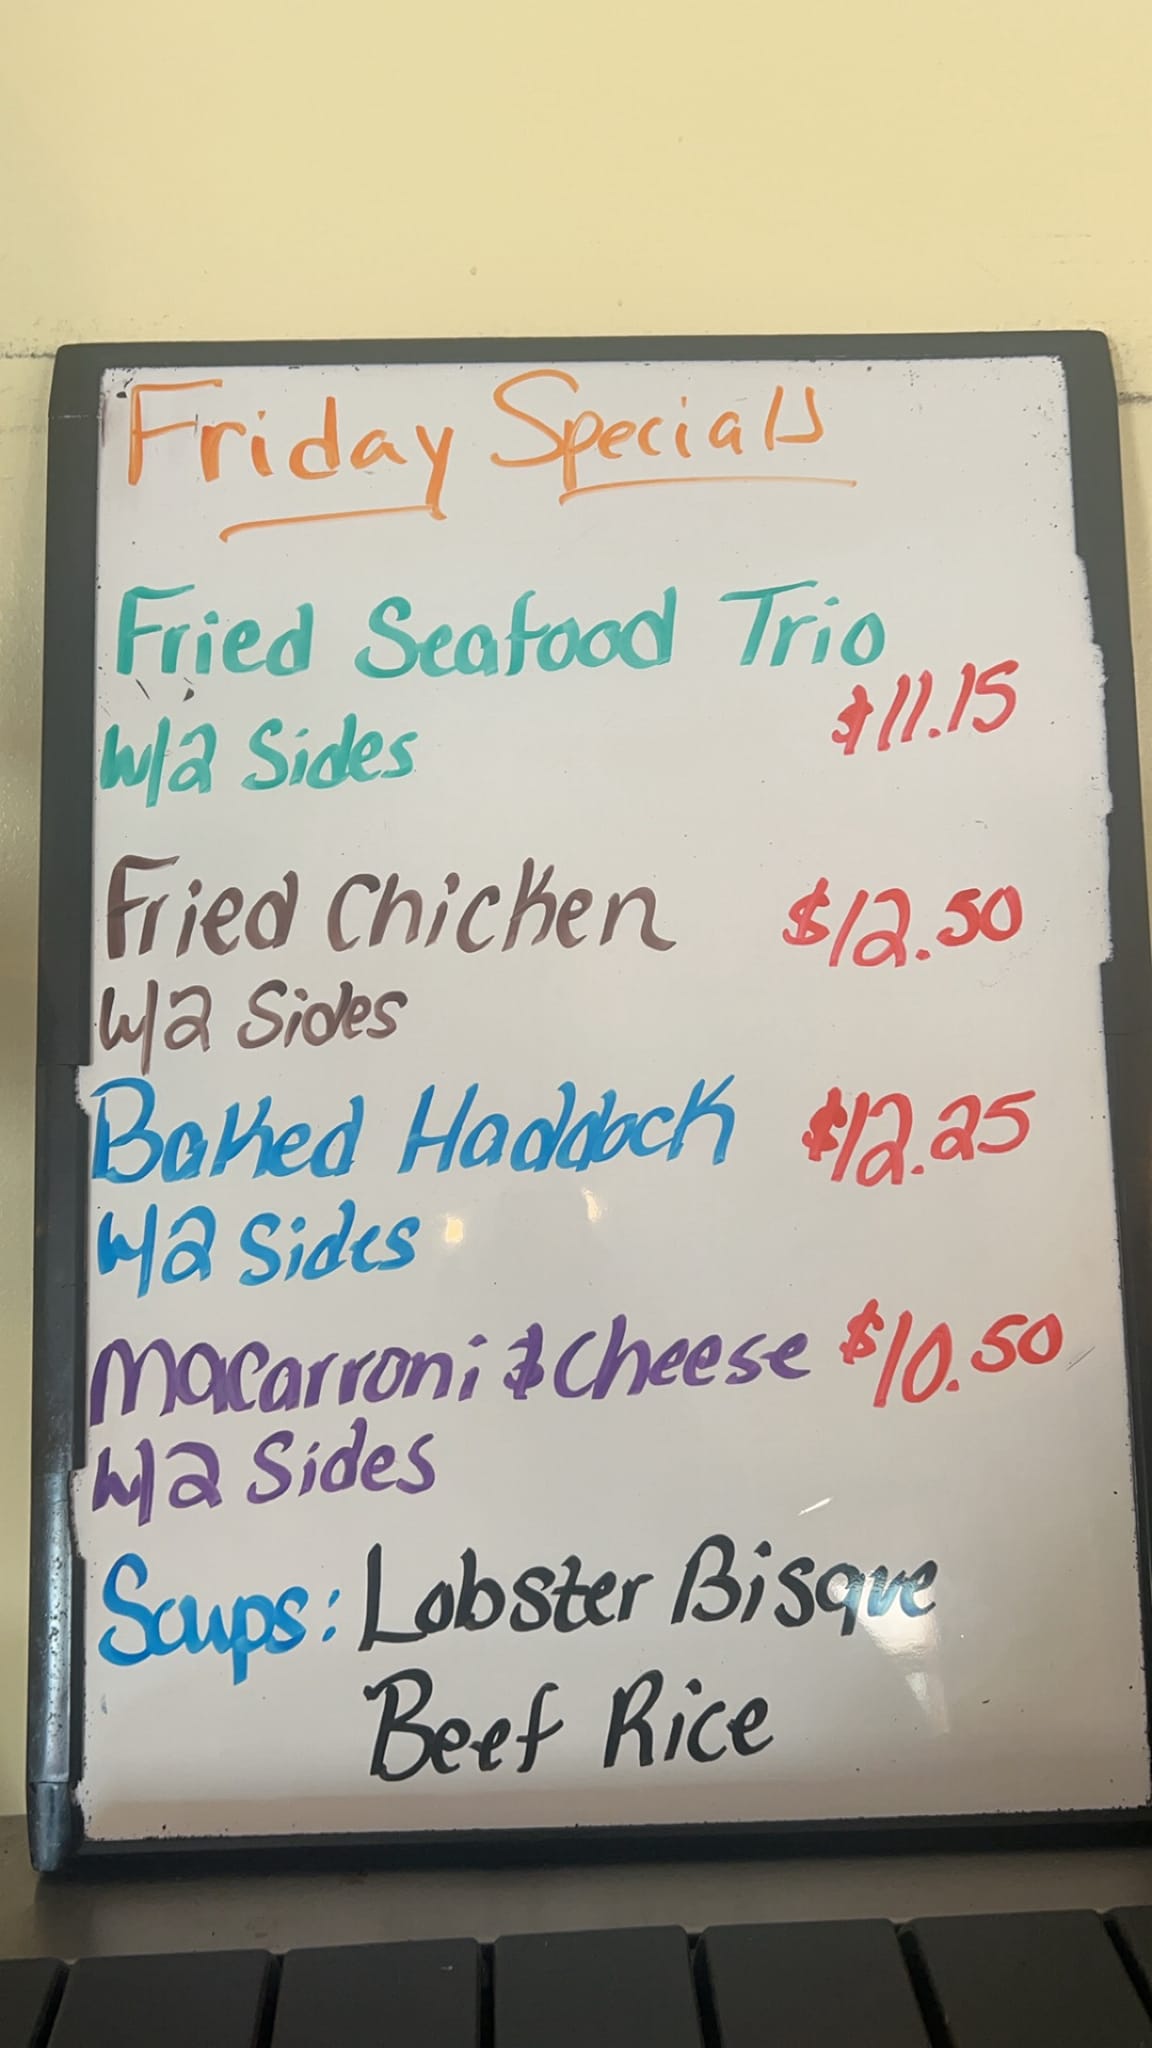 Friday Specials
Fried Seafood Trio
w/2 Sides $11.15
Fried Chicken $12.50
w/2 Sides
Baked Haddock $12.25
w/2 Sides
Macarroni & Cheese $10.50
w/2 Sides
Soups: Lobster Bisque
Beef Rice